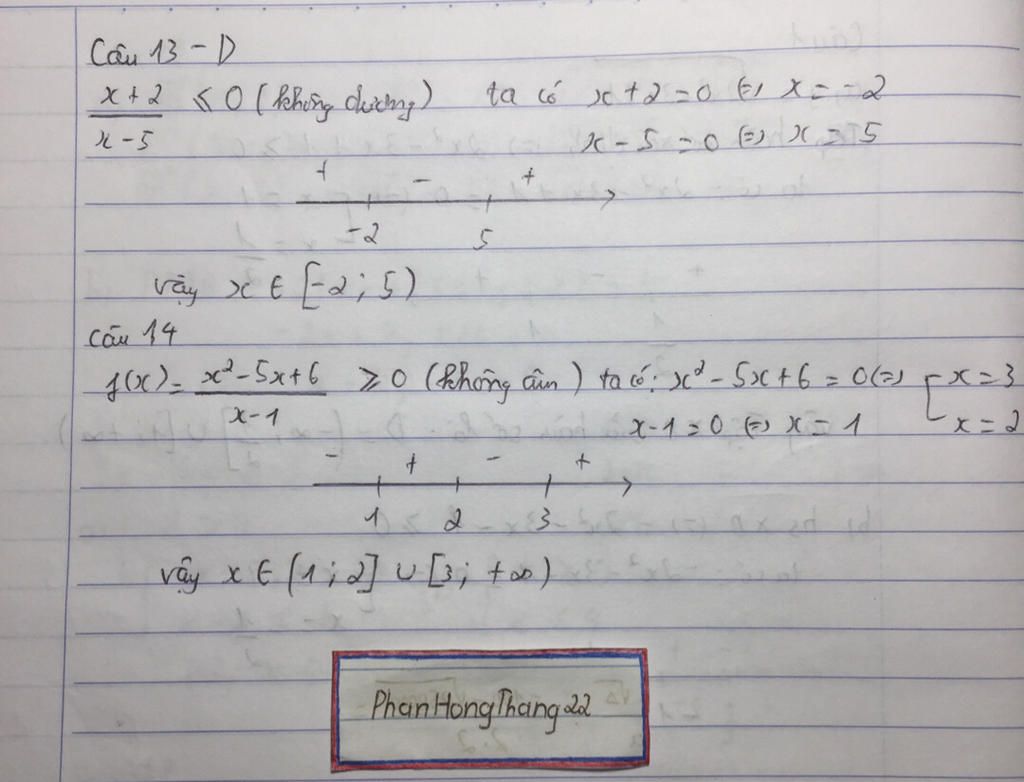 Câu 13 - D
x + 2 / x - 5 ≤ 0 (không dương) ta có x + 2 = 0 (=) x = -2
x - 5 = 0 (=) x = 5
+ - +
-2 5
vậy x ∈ [-2 ; 5)
Câu 14
f(x) = x² - 5x + 6 / x - 1 ≥ 0 (không âm) ta có: x² - 5x + 6 = 0 (=) [ x = 3
x = 2
x - 1 = 0 (=) x = 1
- + - +
1 2 3
vậy x ∈ (1 ; 2] ∪ [3 ; +∞)
PhanHongThang22